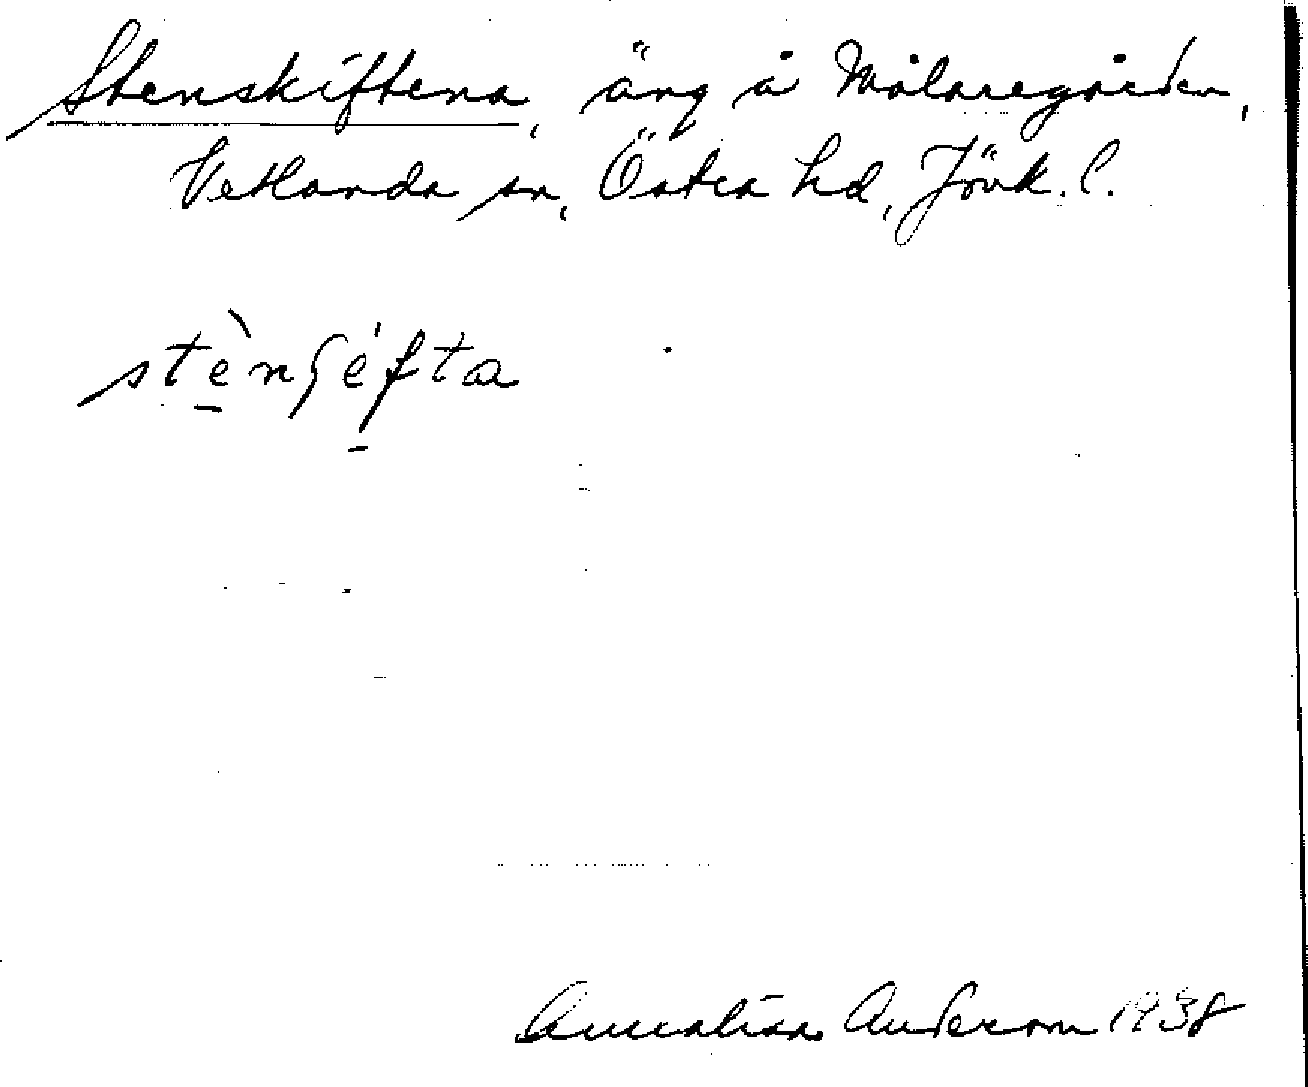 Stenskiftena, äng å Målaregården,
Vetlanda sn, Östra hd, Jönk. l.
stènʃéfta
Anderson 1938